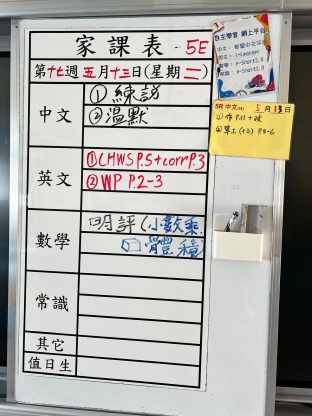 家課表 - 5E
第十七週 五月十三日(星期二)
中文
① 練訪
② 温默
英文
① CHWS P.5 + corr P.3
② WP P.2-3
數學
明評(小數乘
體積)
常識
其它
值日生
自主學習 網上平台
5R 中文 5月13日
① 作 P.11 + 改